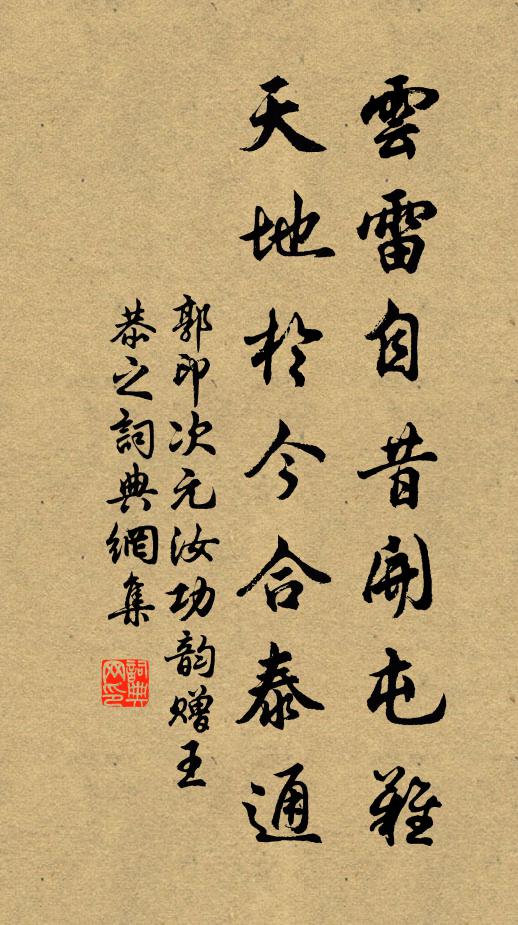 雲雷自昔開屯難
天地於今合泰通
郭印次元汝功韵贈王
恭之詞典網集
詞典
网印